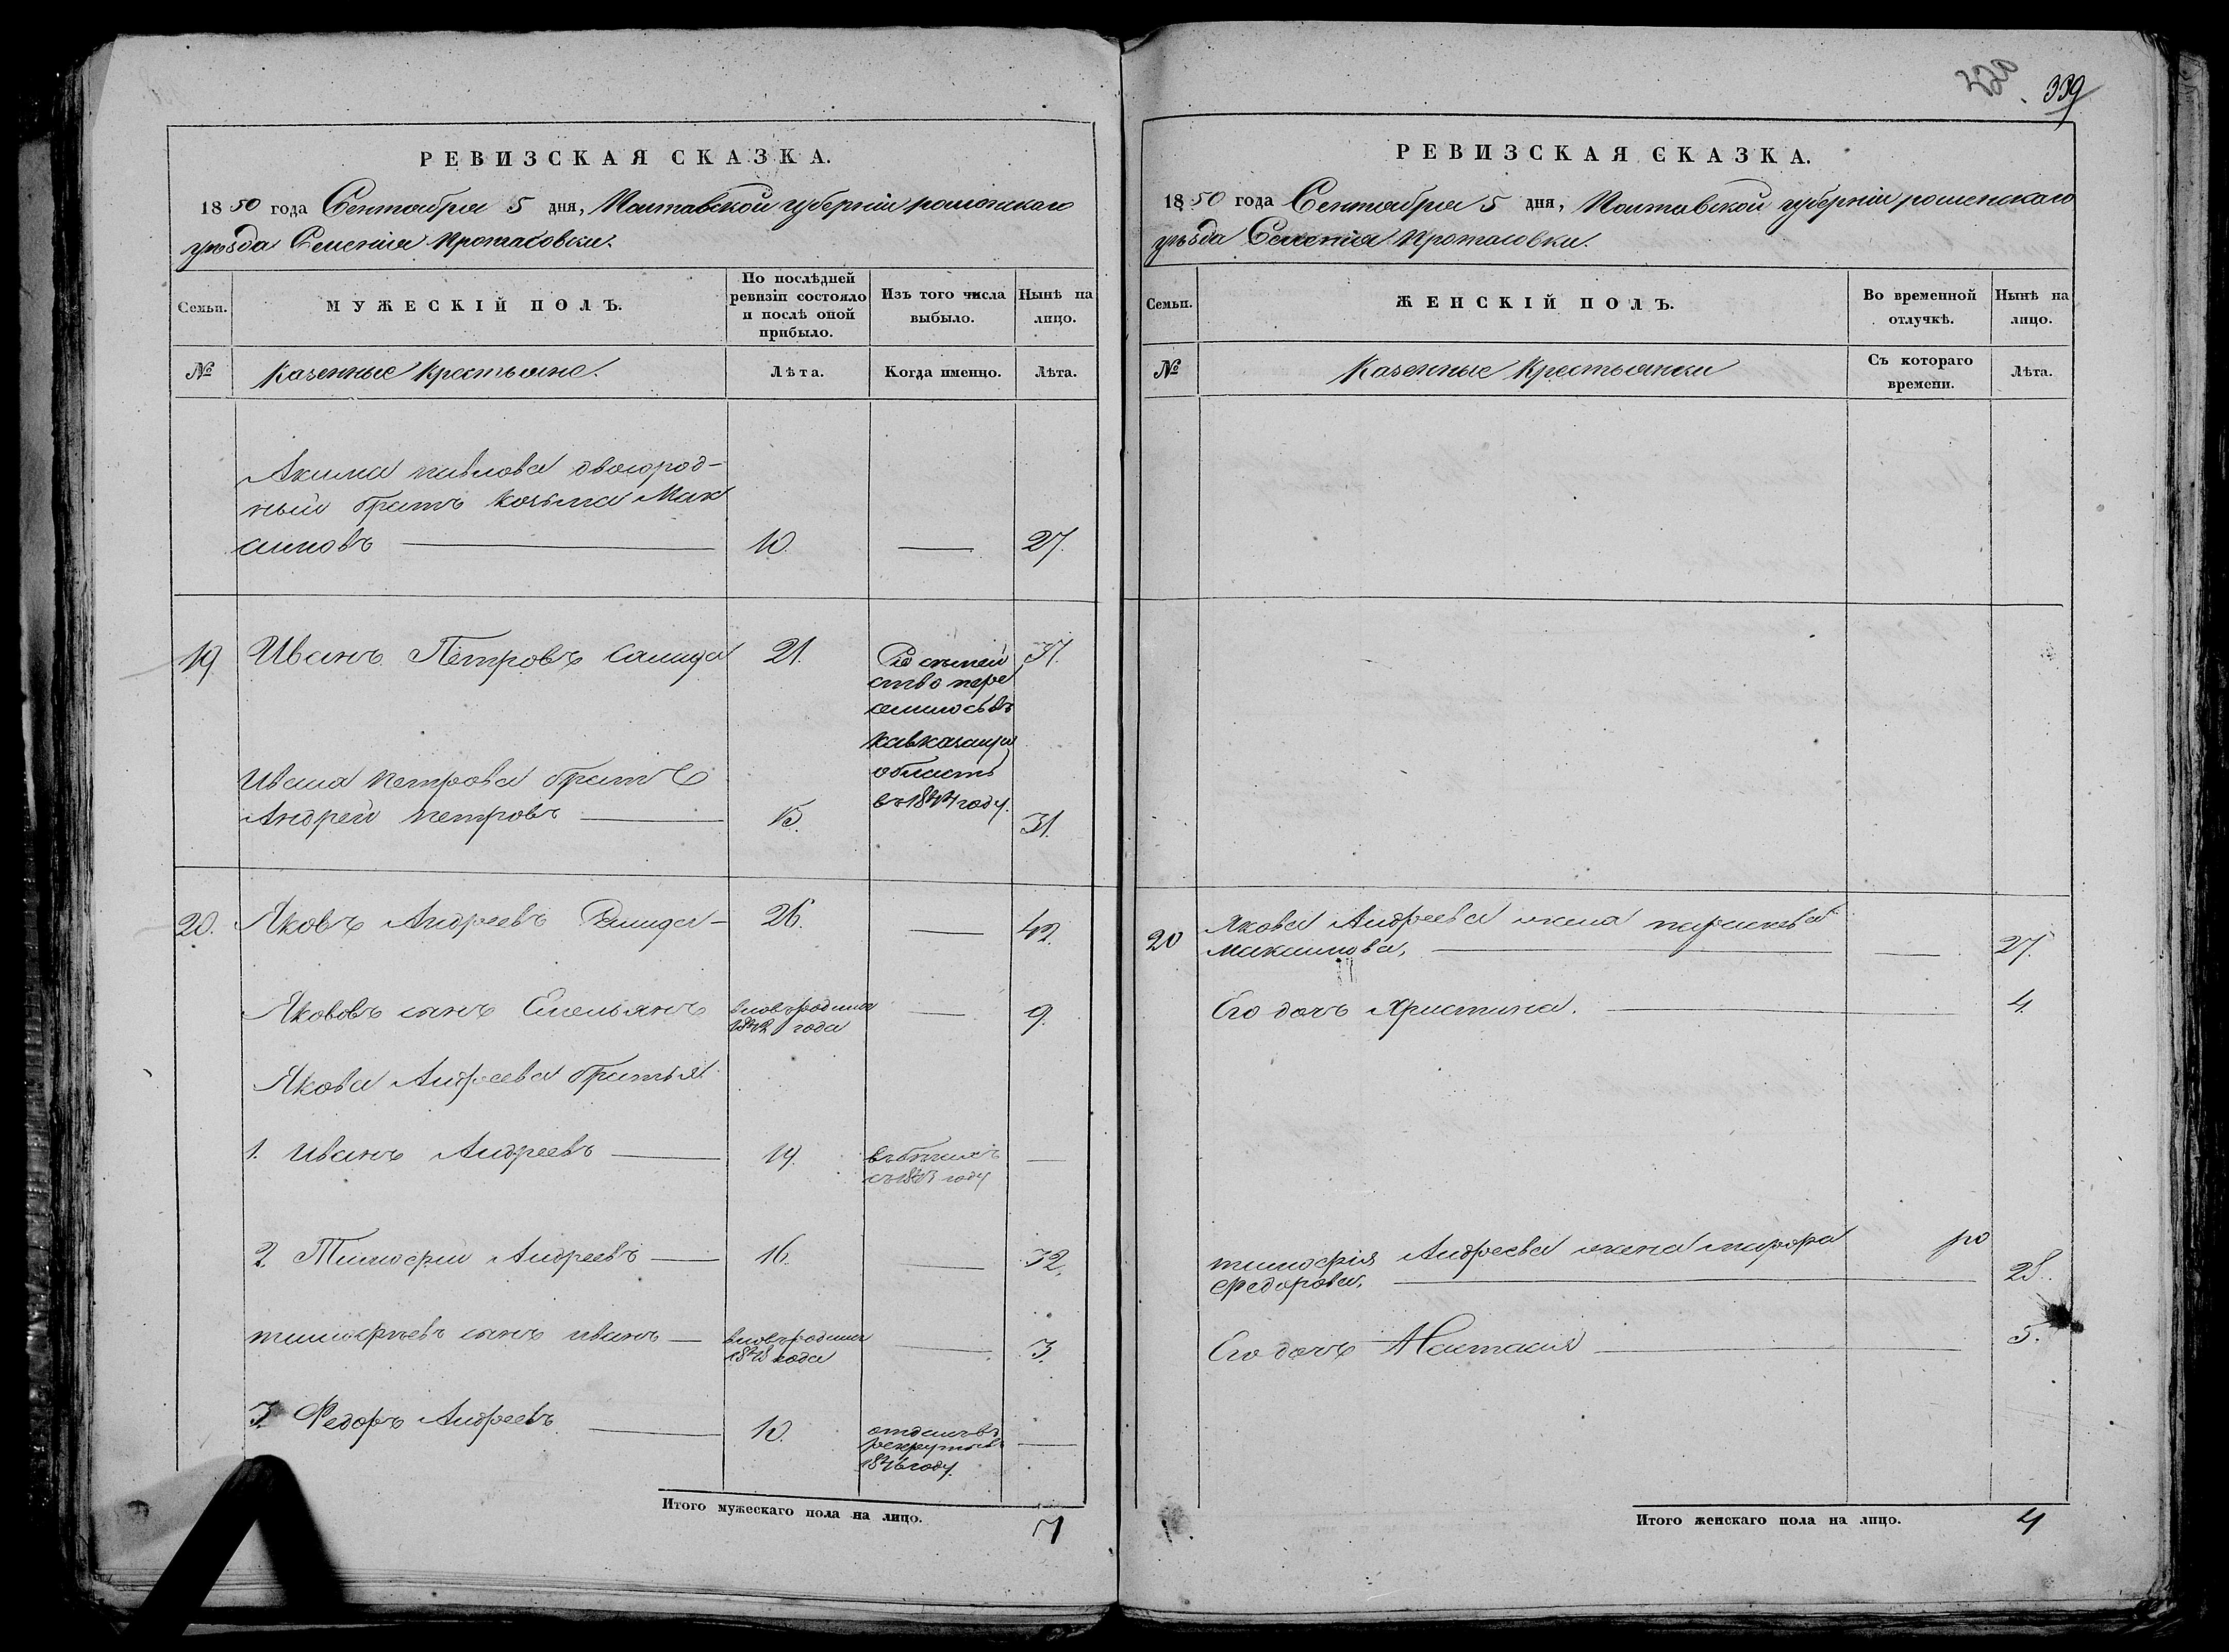 339
РЕВИЗСКАЯ СКАЗКА.
1850 года Сентября 5 дня, Полтавской губерніи роменскаго
уѣзда Селенія Протасовки.
Семьи.
МУЖЕСКІЙ ПОЛЪ.
По послѣдней
ревизіи состояло
и послѣ оной
прибыло.
Изъ того числа
выбыло.
Нынѣ на
лицо.
№
Казенные Крестьяне.
Лѣта.
Когда именно.
Лѣта.
Акима павлова двоюрод-
ный братъ козьма Мак
симовъ 10. 27.
19 Иванъ Петровъ 21. 37.
семей
ство пере
селилось въ
кавказскую
область
въ 1844 году.
Ивана петрова братъ
Андрей петровъ 15. 31.
20. Яковъ Андреевъ 26. 42.
Якововъ сынъ Емельянъ вновь родился 9.
1842 года
Якова Андреева братья
1. Иванъ Андреевъ 19. въ бегахъ
году
2. Тимофей Андреевъ 16. 32.
тимофѣевъ сынъ иванъ вновь родился 3.
1848 года
3. Федоръ Андреевъ 10. отданъ въ
рекруты въ
1846 году.
Итого мужескаго пола на лицо. 7
РЕВИЗСКАЯ СКАЗКА.
1850 года Сентября 5 дня, Полтавской губерніи роменскаго
уѣзда Селенія Протасовки.
Семьи.
ЖЕНСКІЙ ПОЛЪ.
Во временной
отлучкѣ.
Нынѣ на
лицо.
№
Казенные Крестьянки
Съ котораго
времени.
Лѣта.
20 Якова Андреева жена параскева
максимова, 27.
Его дочь Христина. 4.
тимофія Андреева жена
Федорова, 28.
Его дочь Настасія 5.
Итого женскаго пола на лицо. 4